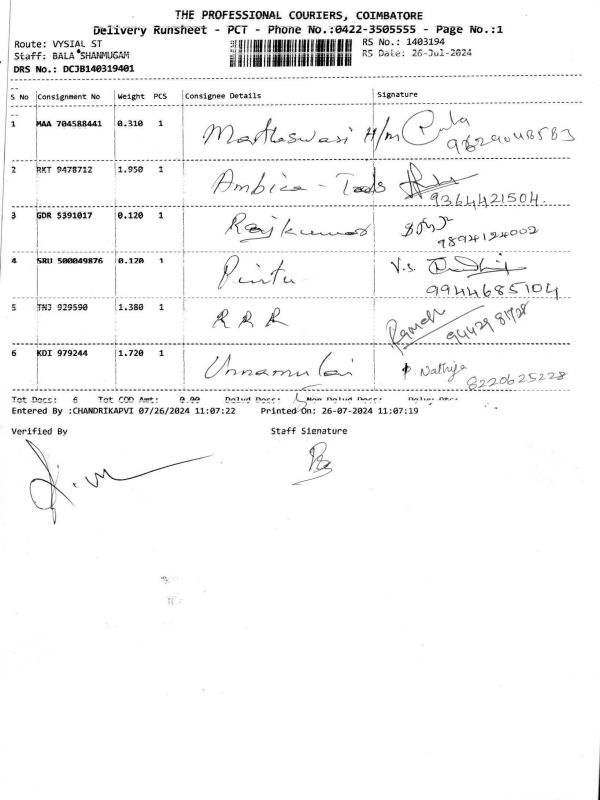 THE PROFESSIONAL COURIERS, COIMBATORE
Delivery Runsheet - PCT - Phone No.:0422-3505555 - Page No.:1
Route: VYSIAL ST RS No.: 1403194
Staff: BALA SHANMUGAM RS Date: 26-Jul-2024
DRS No.: DCJB140319401
S No Consignment No Weight PCS Consignee Details Signature
1 MAA 704588441 0.310 1 H/m
2 RKT 9478712 1.950 1 Ambica - Tools 9364421504
3 GDR 5391017 0.120 1 Rajkumar 9894124002
4 SRU 500049876 0.120 1 Pintu V.S. 9944685104
5 TNJ 929590 1.380 1 R R R Ramesh
6 KDI 979244 1.720 1 Unnamulai Nathiya 8220625228
Tot Docs: 6 Tot COD Amt: 0.00 Delvd Docs: Non Delvd Docs:
Entered By :CHANDRIKAPVI 07/26/2024 11:07:22 Printed On: 26-07-2024 11:07:19
Verified By Staff Signature